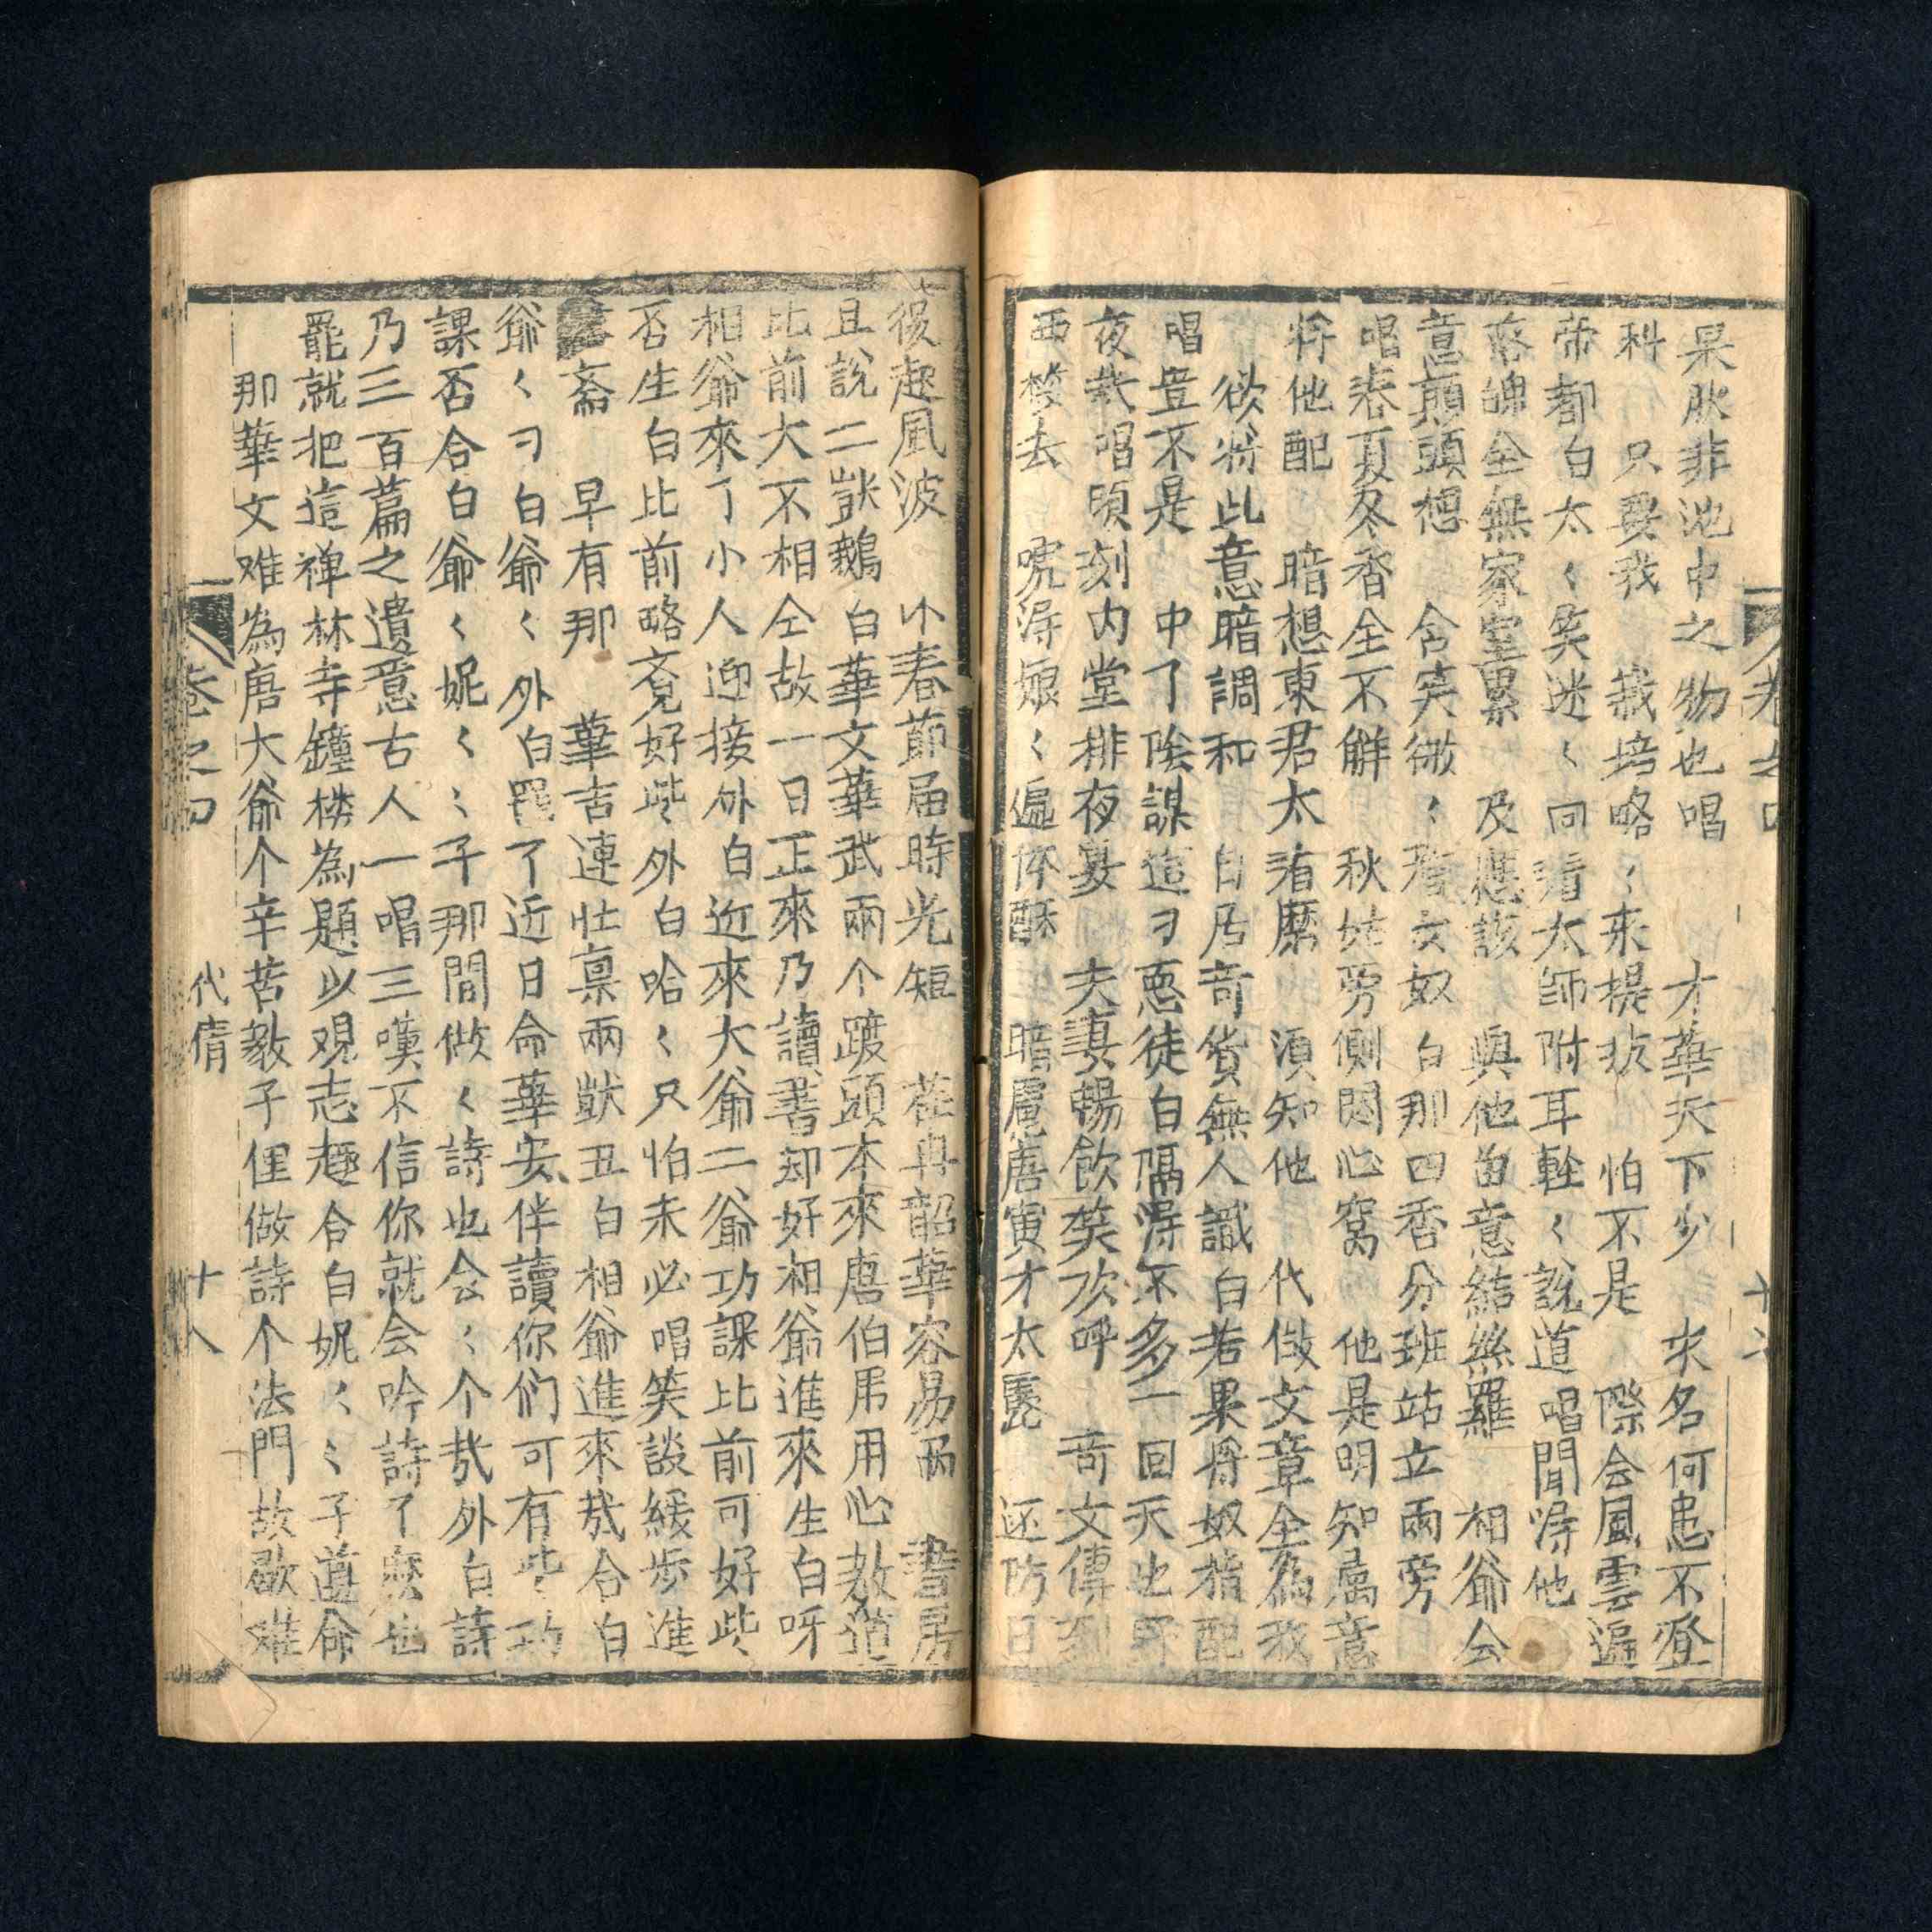 卷之四
果然非池中之物也唱 才華天下少 求名何患不登
科 只要我 栽培略〻来提拔 怕不是 際会風雲遍
帝都白太〻笑迷〻回看太師附耳軽〻說道唱聞得他
落魄全無家室累 及應該 與他留意結絲羅 相爺会
意顛頭想 含笑微〻看女奴白那四香分班站立兩旁
唱春夏冬香全不解 秋姑旁側悶心窩 他是明知属意
将他配 暗想東君太着麽 須知他 代做文章全為我
欲将此意暗調和 自居奇貨無人識白若果冉奴指配
唱豈不是 中了陰謀這刁惡徒白隔得不多一回天也
夜哉唱頃刻内堂排夜宴 夫妻暢飲笑欢呼 奇文傳到
西楼去 唬得娘〻遍体酥 暗罵唐寅才太 还防日
後起風波 小春節届時光短 荏冉韶華容易 書房
且說二 白華文華武兩个踱頭本來唐伯用心教道
比前大不相仝故一日正來乃讀書却好相爺進來生白呀
相爺來了小人迎接外白近來大爺二爺功課比前可好些
否生白比前略 好些外白哈〻只怕未必唱笑談緩步進
書斋 早有那 華吉連忙禀兩獃丑白相爺進來哉合白
爺〻刁白爺〻外白罷了近日命華安伴讀你们可有些功
課否合白爺〻妮〻〻子那間做〻詩也会〻个哉外白詩
乃三百篇之遺意古人一唱三嘆不信你就会吟詩了麽也
罷就把這禅林寺鐘楼為題以观志趣合白妮〻〻子遵命
那華文难為唐大爺个辛苦教子俚做詩个法門故歇难
卷之四 代倩 十八